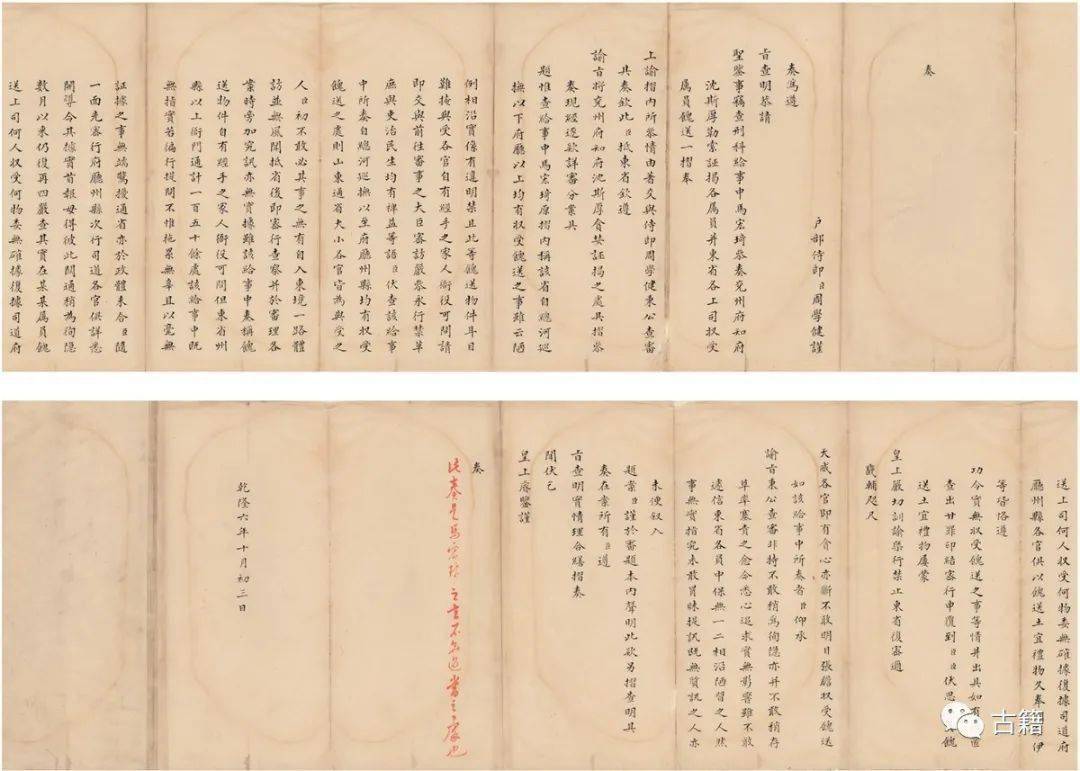 奏
户部侍郎臣周學健謹
奏為遵
旨查明恭請
聖鑒事竊查刑科給事中馬宏琦叅奏兖州府知府
沈斯厚勒索証揭各属員并東省各上司収受
属員餽送一摺奉
上諭摺內所叅情由著交與侍郎周學健秉公查審
具奏欽此臣抵東省欽遵
諭旨將兖州府知府沈斯厚婪証揭之處具摺叅
奏現經逐欵詳審分案具
題惟查給事中馬宏琦原摺內稱該省自總河巡
撫以下府廳以上均有収受餽送之事雖云陋
例相沿實係有違明禁且此等餽送物件耳目
雖接與受各官自有經手之家人衙役可問請
即交與前往審事之大臣審訪嚴叅永行禁革
庶與吏治民生均有裨益等語臣伏查該給事
中所奏自總河巡撫以至府廳州縣均有収受
餽送之處則山東通省大小各官皆為與受之
人臣初不敢必其事之無有自入東境一路體
訪並無風聞抵省後即審行查察并於審理各
案時旁加究訊亦無實據雖該給事中奏稱餽
送物件自有經手之家人衙役可問但東省州
縣以上衙門通計一百五十餘處該給事中既
無指實若徧行提問不惟拖累無辜且以毫無
証據之事無端驚擾通省亦於政體未合臣隨
一面先審行府廳州縣次行司道各官俱詳悉
開導令其據實首報毋得彼此関通稍為徇隱
數月以來仍復再四嚴查其實在某某属員餽
送上司何人収受何物委無確據復據司道府
送上司何人収受何物委無確據復據司道府
廳州縣各官俱以餽送土宜禮物久奉伊
等皆恪遵
功令實無収受餽送之事等情并出具如有匿
查出甘罪印結審行申覆到臣臣伏思餽
送土宜禮物屢蒙
皇上嚴切訓諭槩行禁止東省復審邇
畿輔咫尺
天威各官即有貪心亦斷不敢明目張膽収受餽送
如該給事中所奏者臣仰承
諭旨秉公查審非特不敢稍為徇隱亦并不敢稍存
草率塞責之念悉心追求實無影響雖不敢
遽信東省各員中保無一二相沿陋習之人然
事無實指究未敢冒昧提訊既無質訊之人亦
未便叙入
題案臣謹於審題本內聲明此欵另摺查明具
奏在案所有臣遵
旨查明實情理合繕摺奏
聞伏乞
皇上睿鑒謹
奏
此奏是馬宏琦之言不無過當之處也
乾隆六年十月初三日
古籍